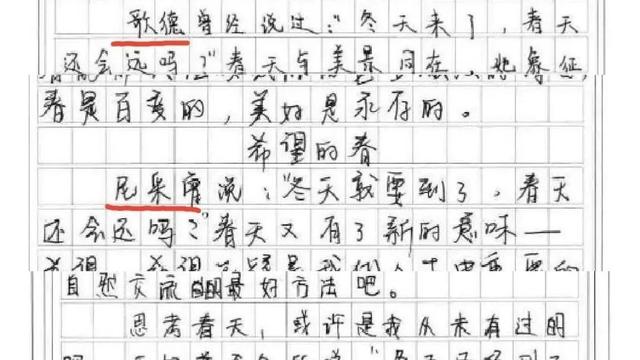 歌德曾经说过:"冬天来了,春天
还会远吗?"春天与美景同在,她象征
春是百变的,美好是永存的。
希望的春
尼采曾说:"冬天就要到了,春天
还会远吗?"春天又有了新的意味——
自然交流的最好方法吧。
思考春天,或许是我从未有过的